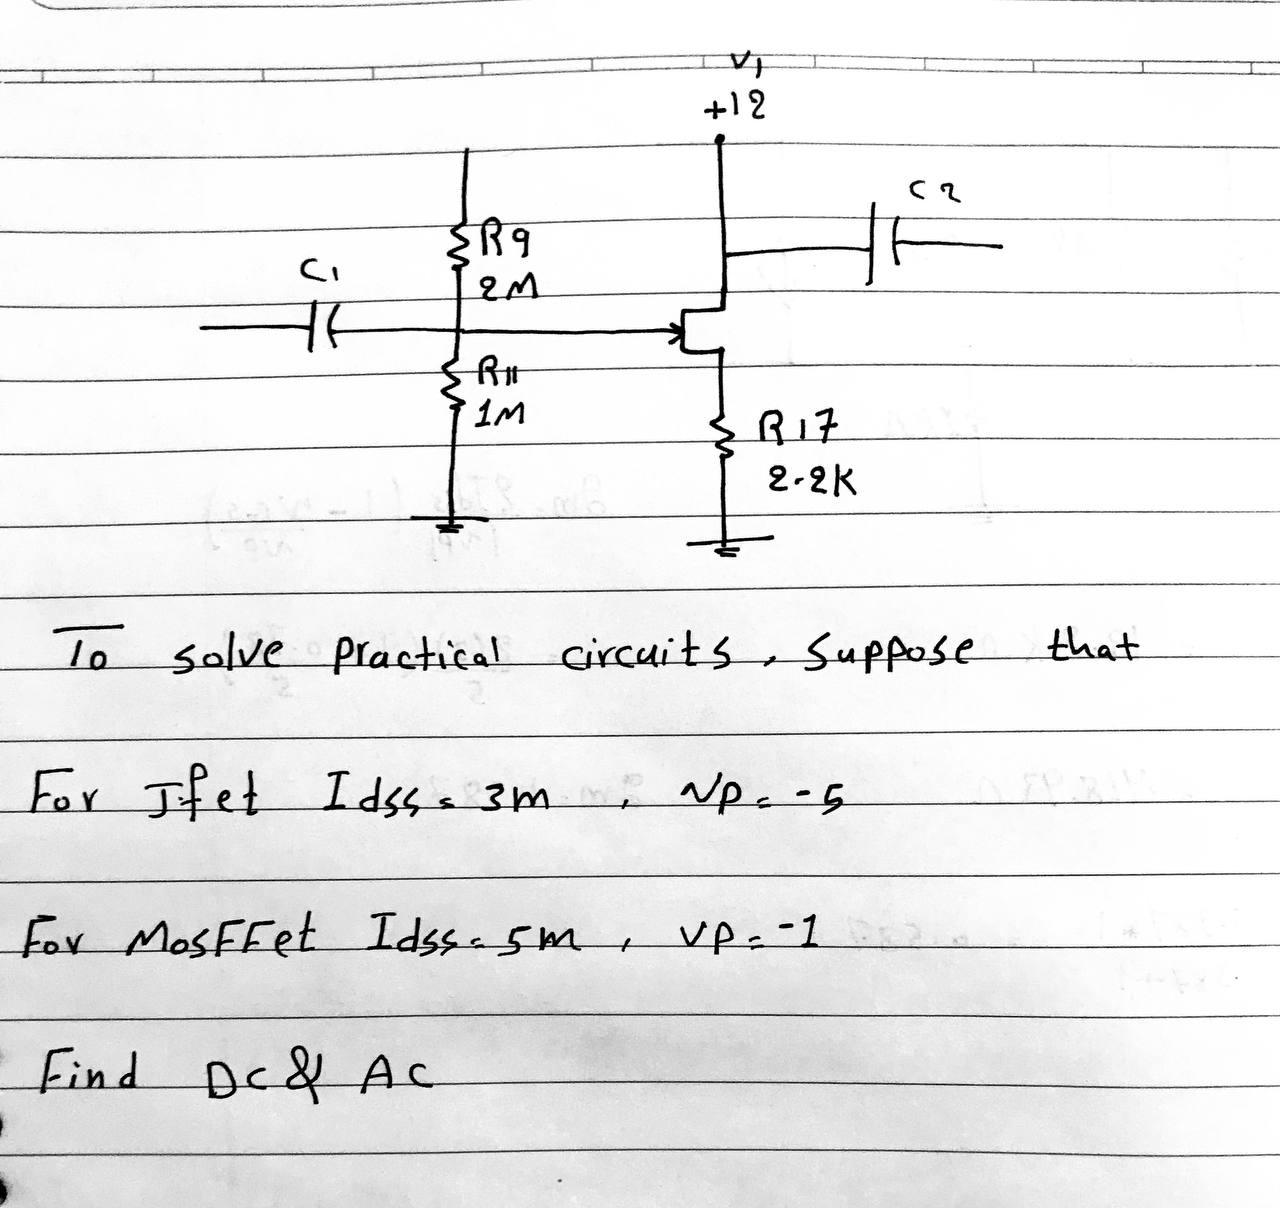 V1
+12
C2
R9
C1
2M
R11
1M
R17
2.2K
To solve practical circuits, suppose that
For Jfet Idss = 3m , Vp = -5
For MosFFet Idss = 5m , VP = -1
Find DC & AC